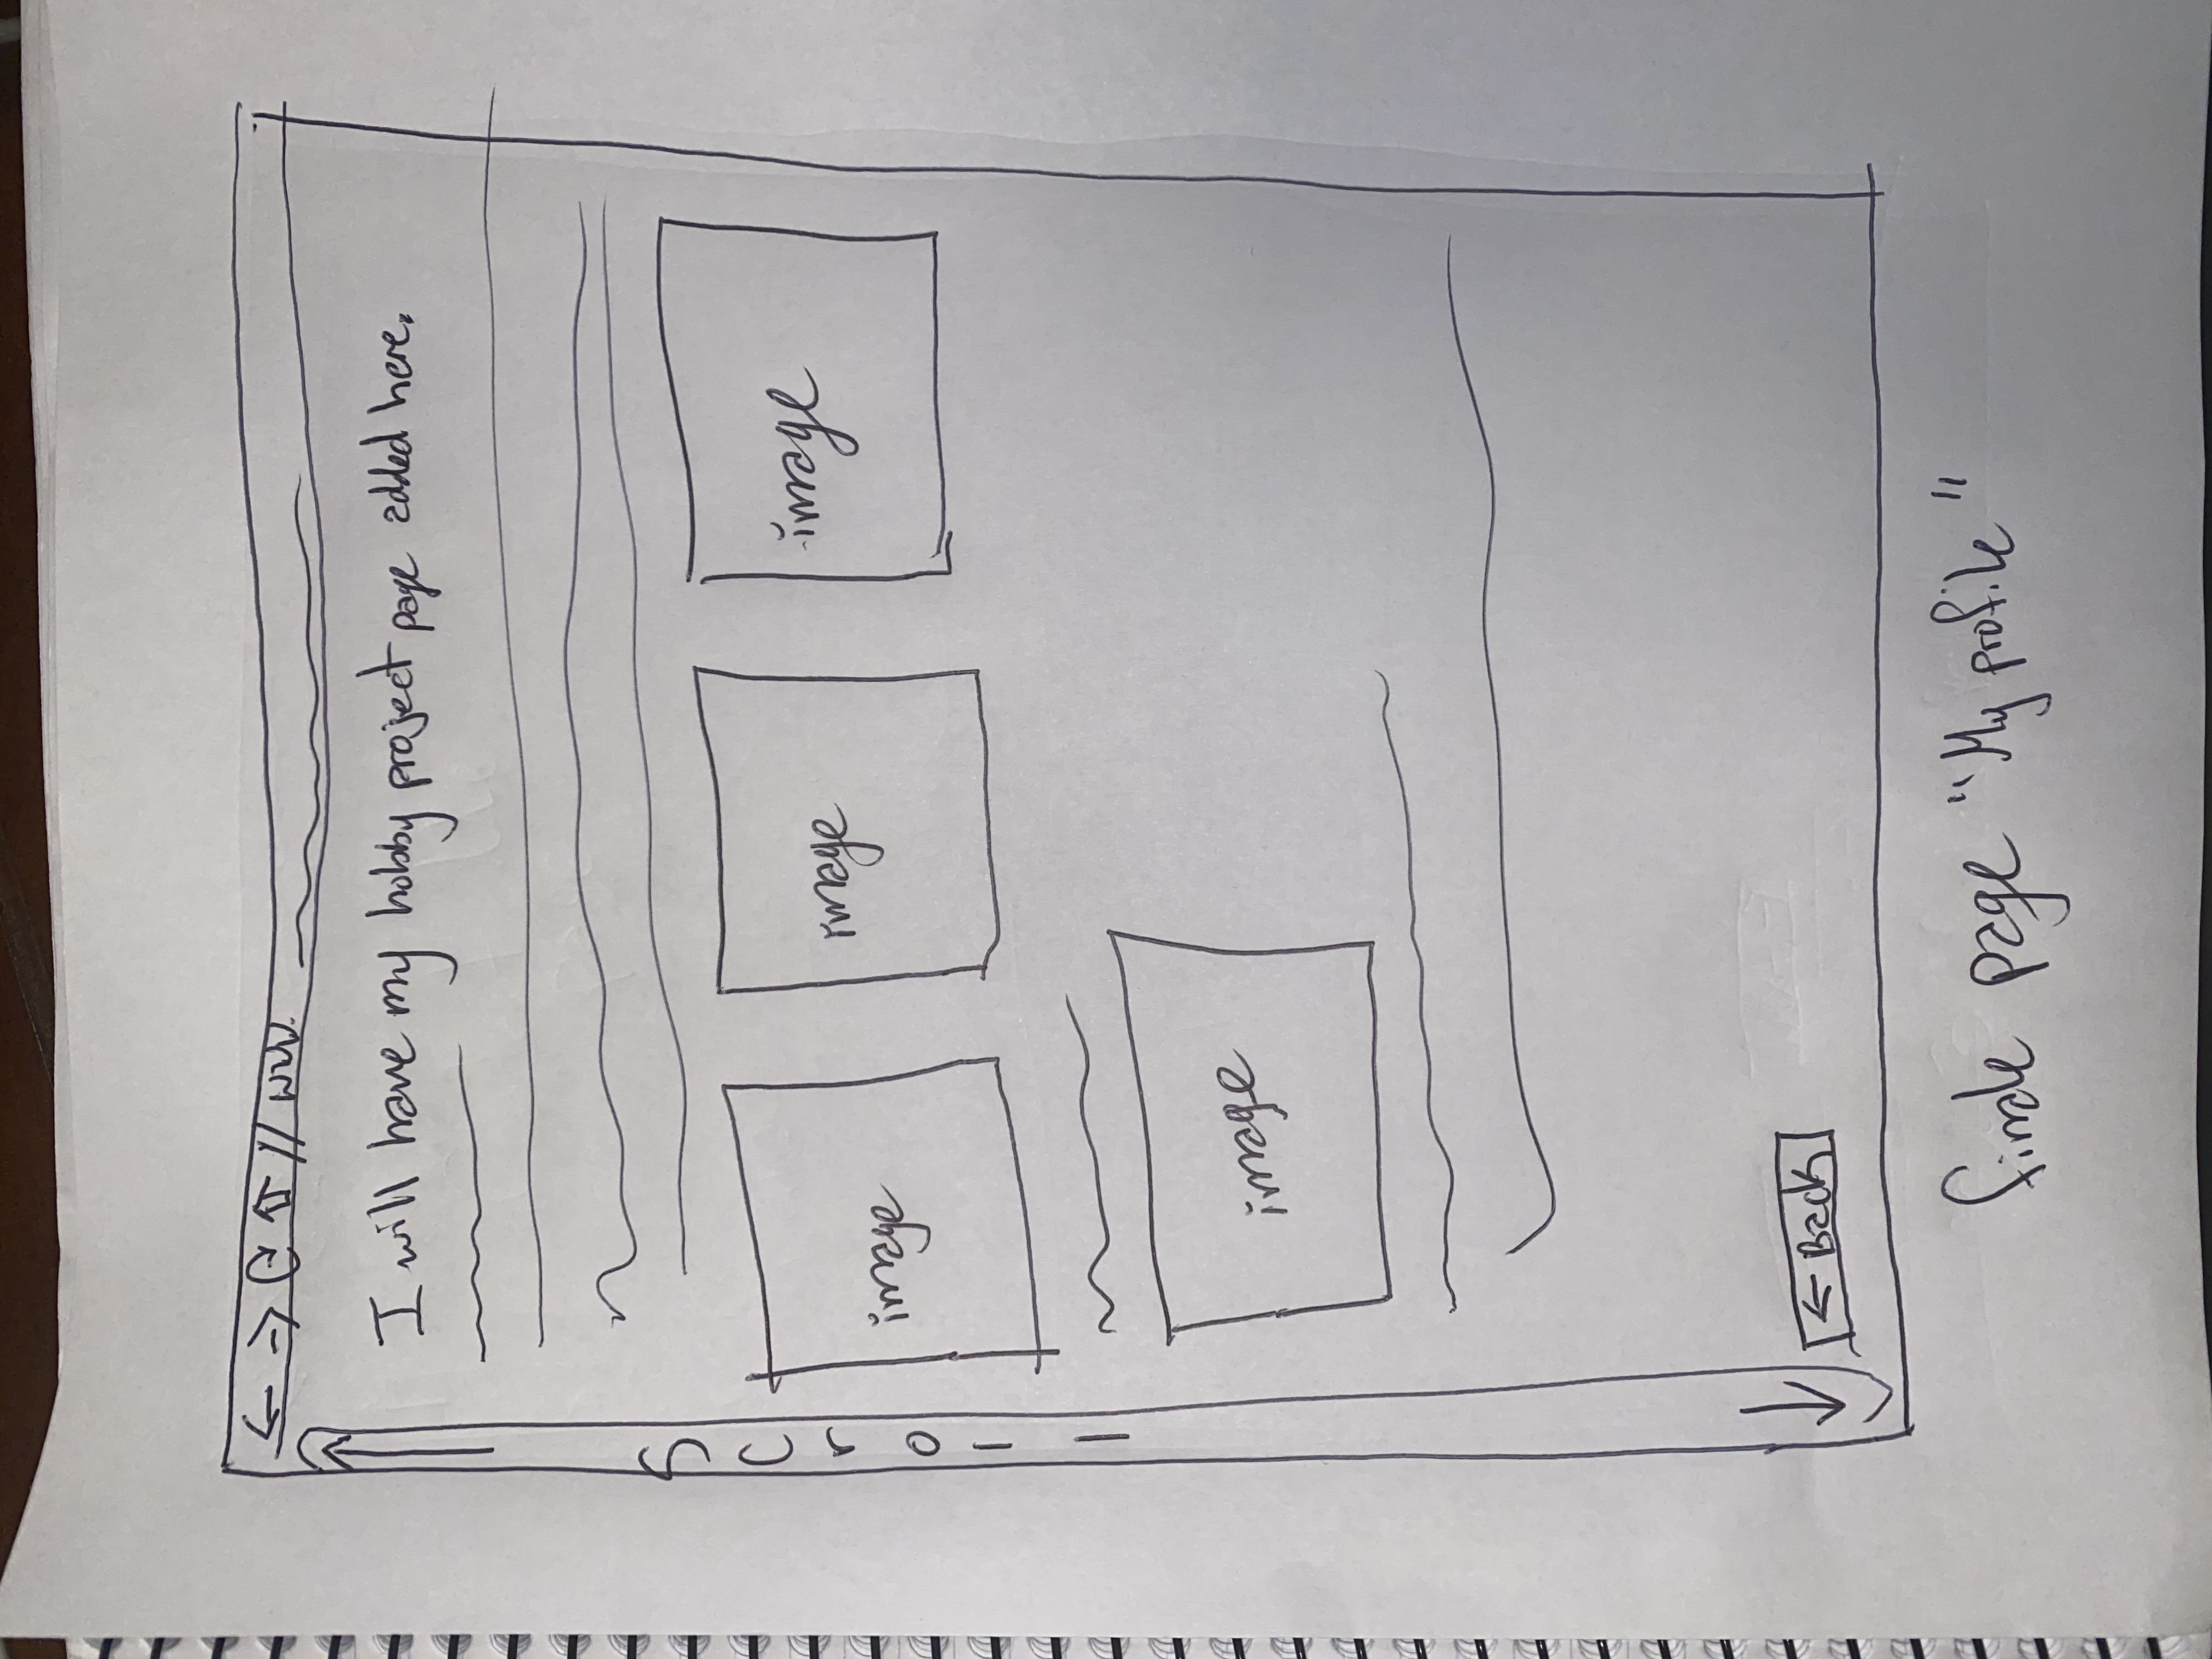 ← → // www.
I will have my hobby project page added here.
Scroll
image
image
image
image
← Back
finale page "My profile"